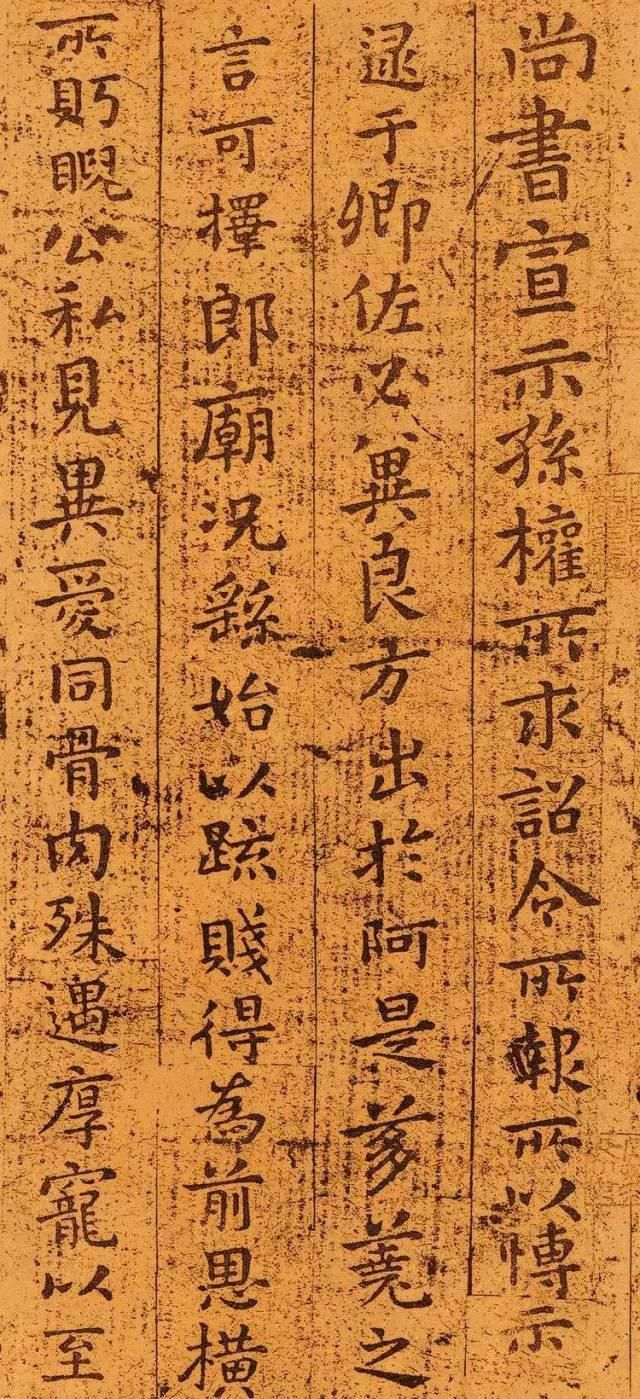 尚書宣示孫權所求詔令所報所以博示
逮于卿佐必冀良方出於阿是芻蕘之
言可擇郎廟况繇始以疏賤得為前恩橫
所眄睨公私見異愛同骨肉殊遇厚寵以至